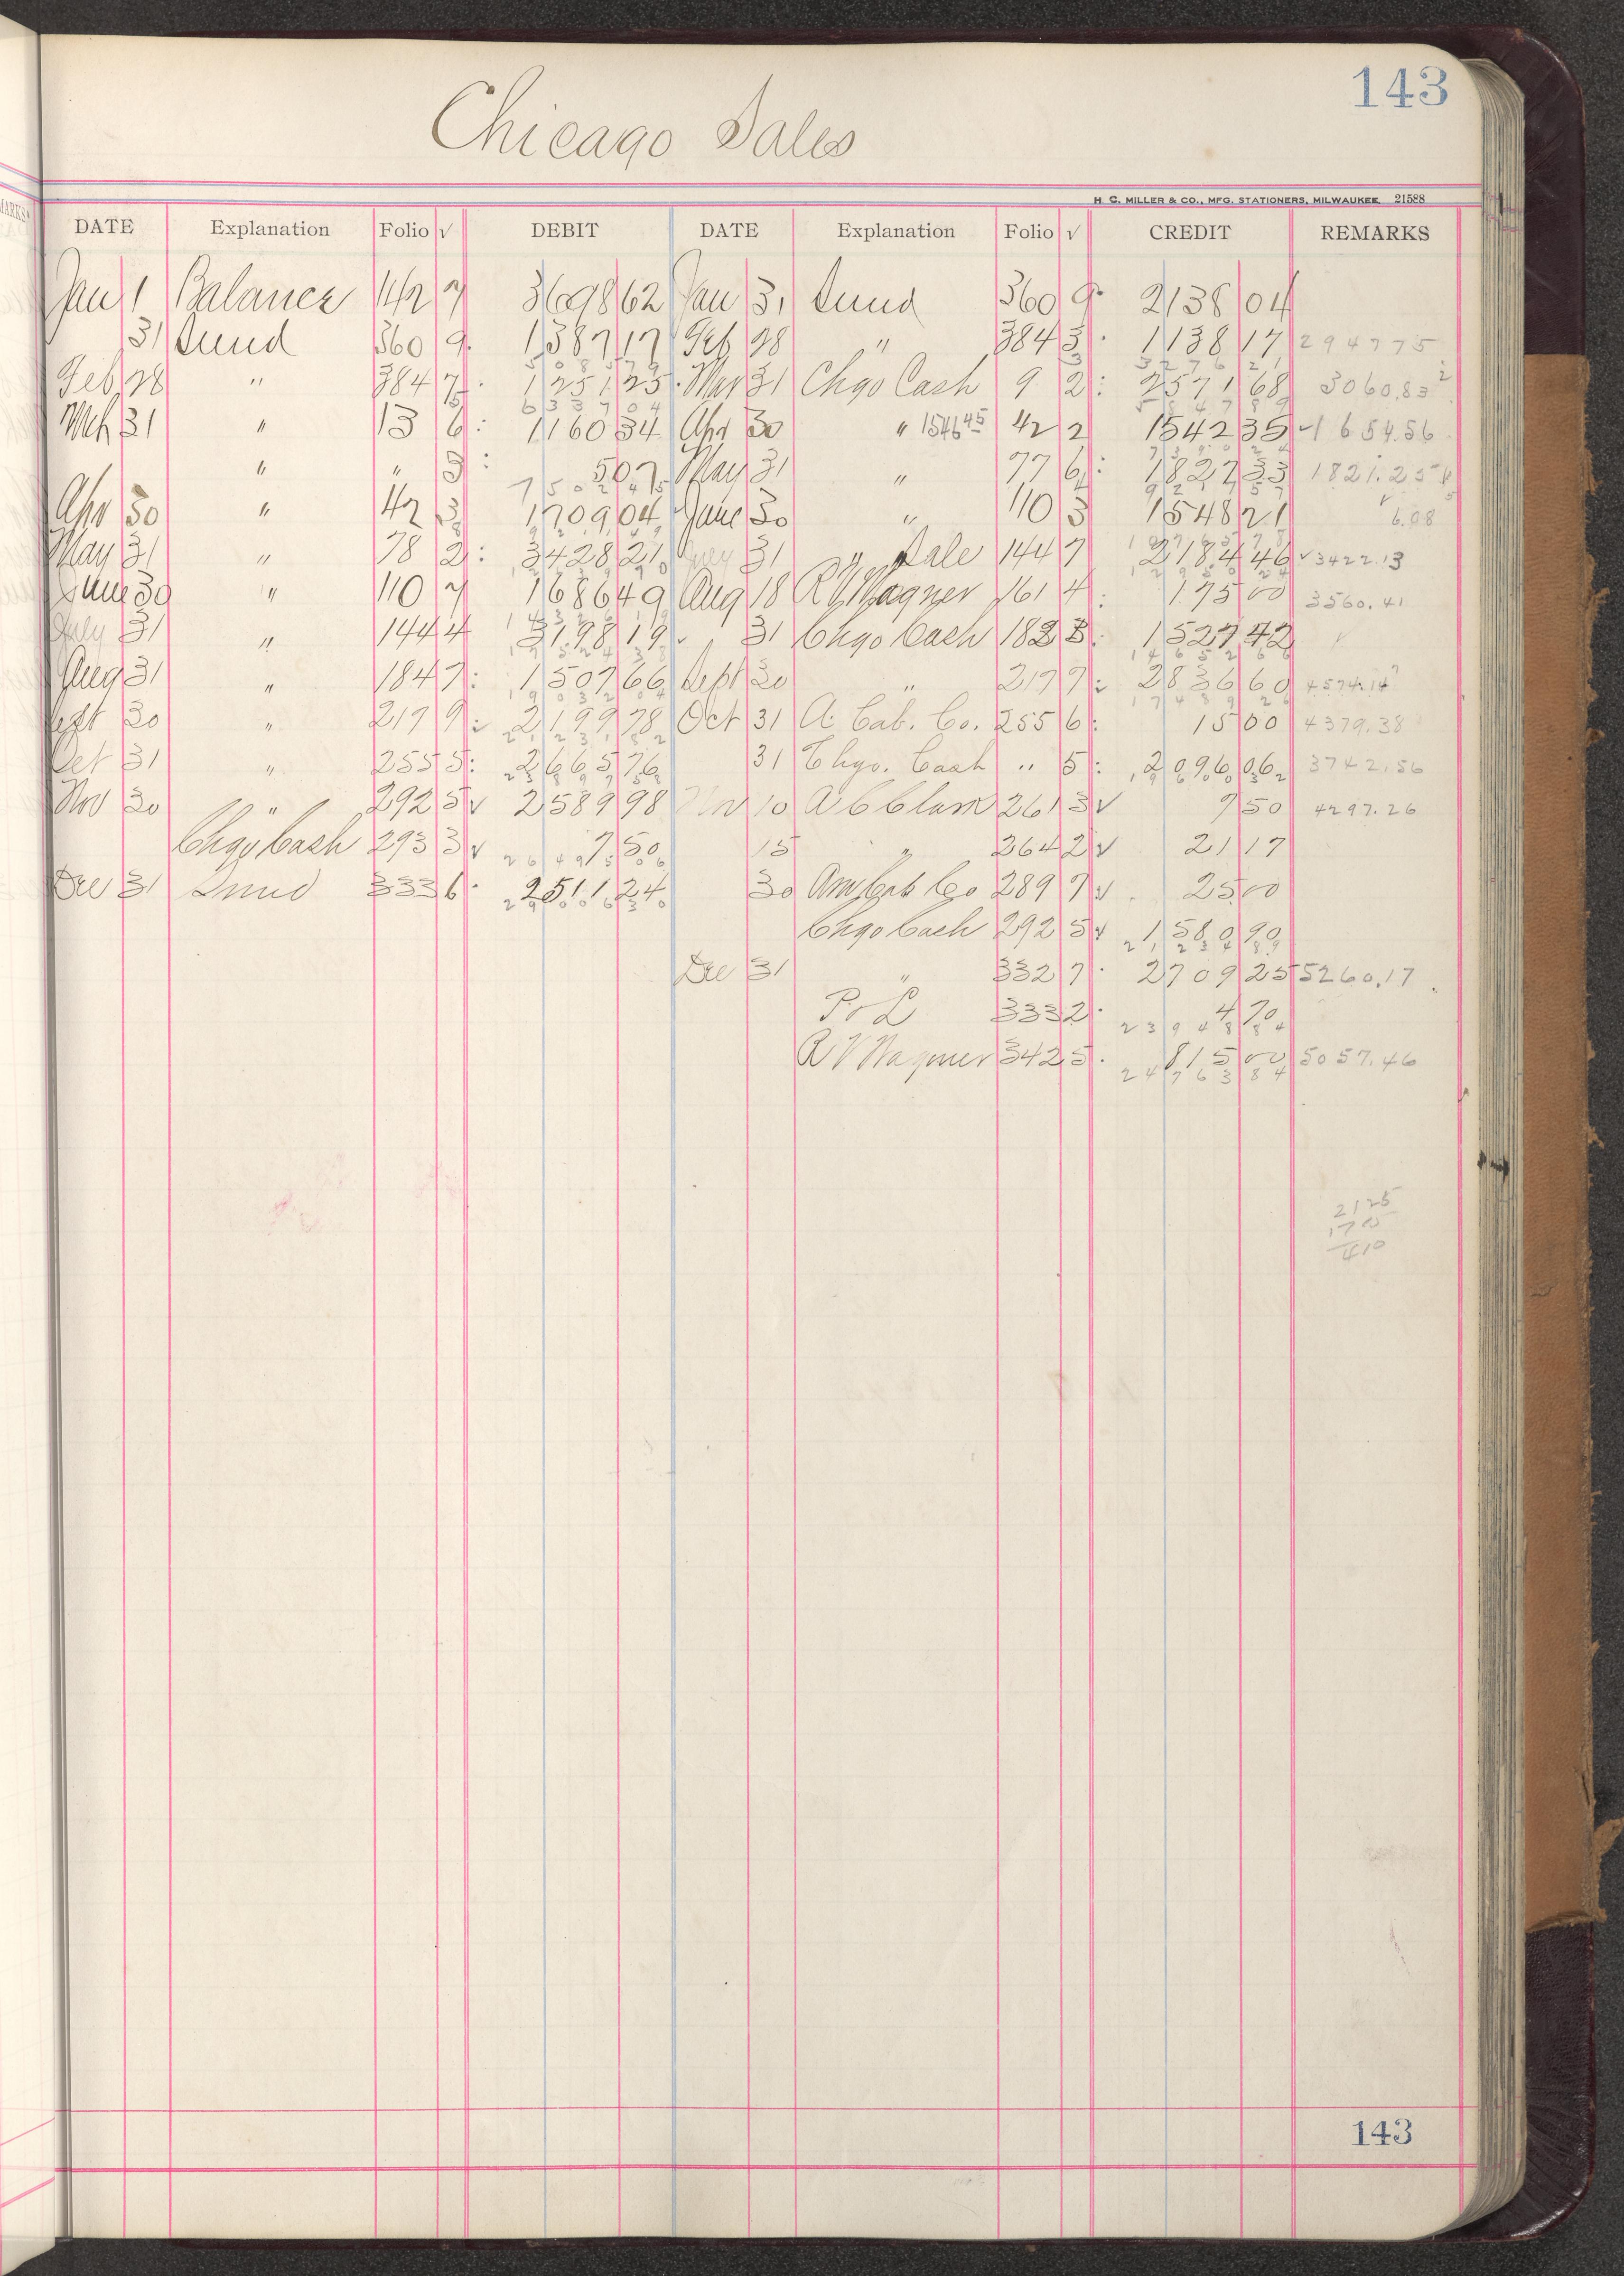 143
Chicago Sales
H. C. MILLER & CO., MFG. STATIONERS, MILWAUKEE 21588
DATE Explanation Folio √ DEBIT DATE Explanation Folio √ CREDIT REMARKS
Jan 1 Balance 142 7 3698 62 Jan 31 Sund 360 9 2138 04
31 Sund 360 9 1387 17 Feb 28 " 384 3 1138 17 294775
Feb 28 " 384 7 1251 25 Mar 31 Chgo Cash 9 2 2571 68 3060.83
Mch 31 " 13 6 1160 34 Apr 30 " 1546 45 42 2 1542 35 1654.56
" " 3 5 07 May 31 " 77 6 1827 33 1821.25
Apr 30 " 42 3 1709 04 June 30 " 110 3 1548 21 6.08
May 31 " 78 2 3428 21 July 31 " Sale 144 7 2184 46 3422.13
June 30 " 110 7 1686 49 Aug 18 R V Wagner 161 4 175 00 3560.41
July 31 " 144 4 3198 19 31 Chgo Cash 182 8 1527 42
Aug 31 " 184 7 1507 66 Sept 30 " 217 7 2836 60 4574.14
Sept 30 " 217 9 2199 78 Oct 31 A. Cab. Co. 255 6 15 00 4379.38
Oct 31 " 255 5 2665 76 31 Chgo. Cash " 5 2096 06 3742.56
Nov 30 " 292 5 √ 2589 98 Nov 10 A C Clark 261 3 √ 7 50 4297.26
Chgo Cash 293 3 √ 7 50 15 " 264 2 √ 21 17
Dec 31 Sund 333 6 2511 24 30 Am Cab Co 289 7 √ 25 00
Chgo Cash 292 5 √ 1580 90
Dec 31 " 332 7 2709 25 5260.17
P & L 333 2 4 70
R V Wagner 342 5 815 00 5057.46
2125
410
143